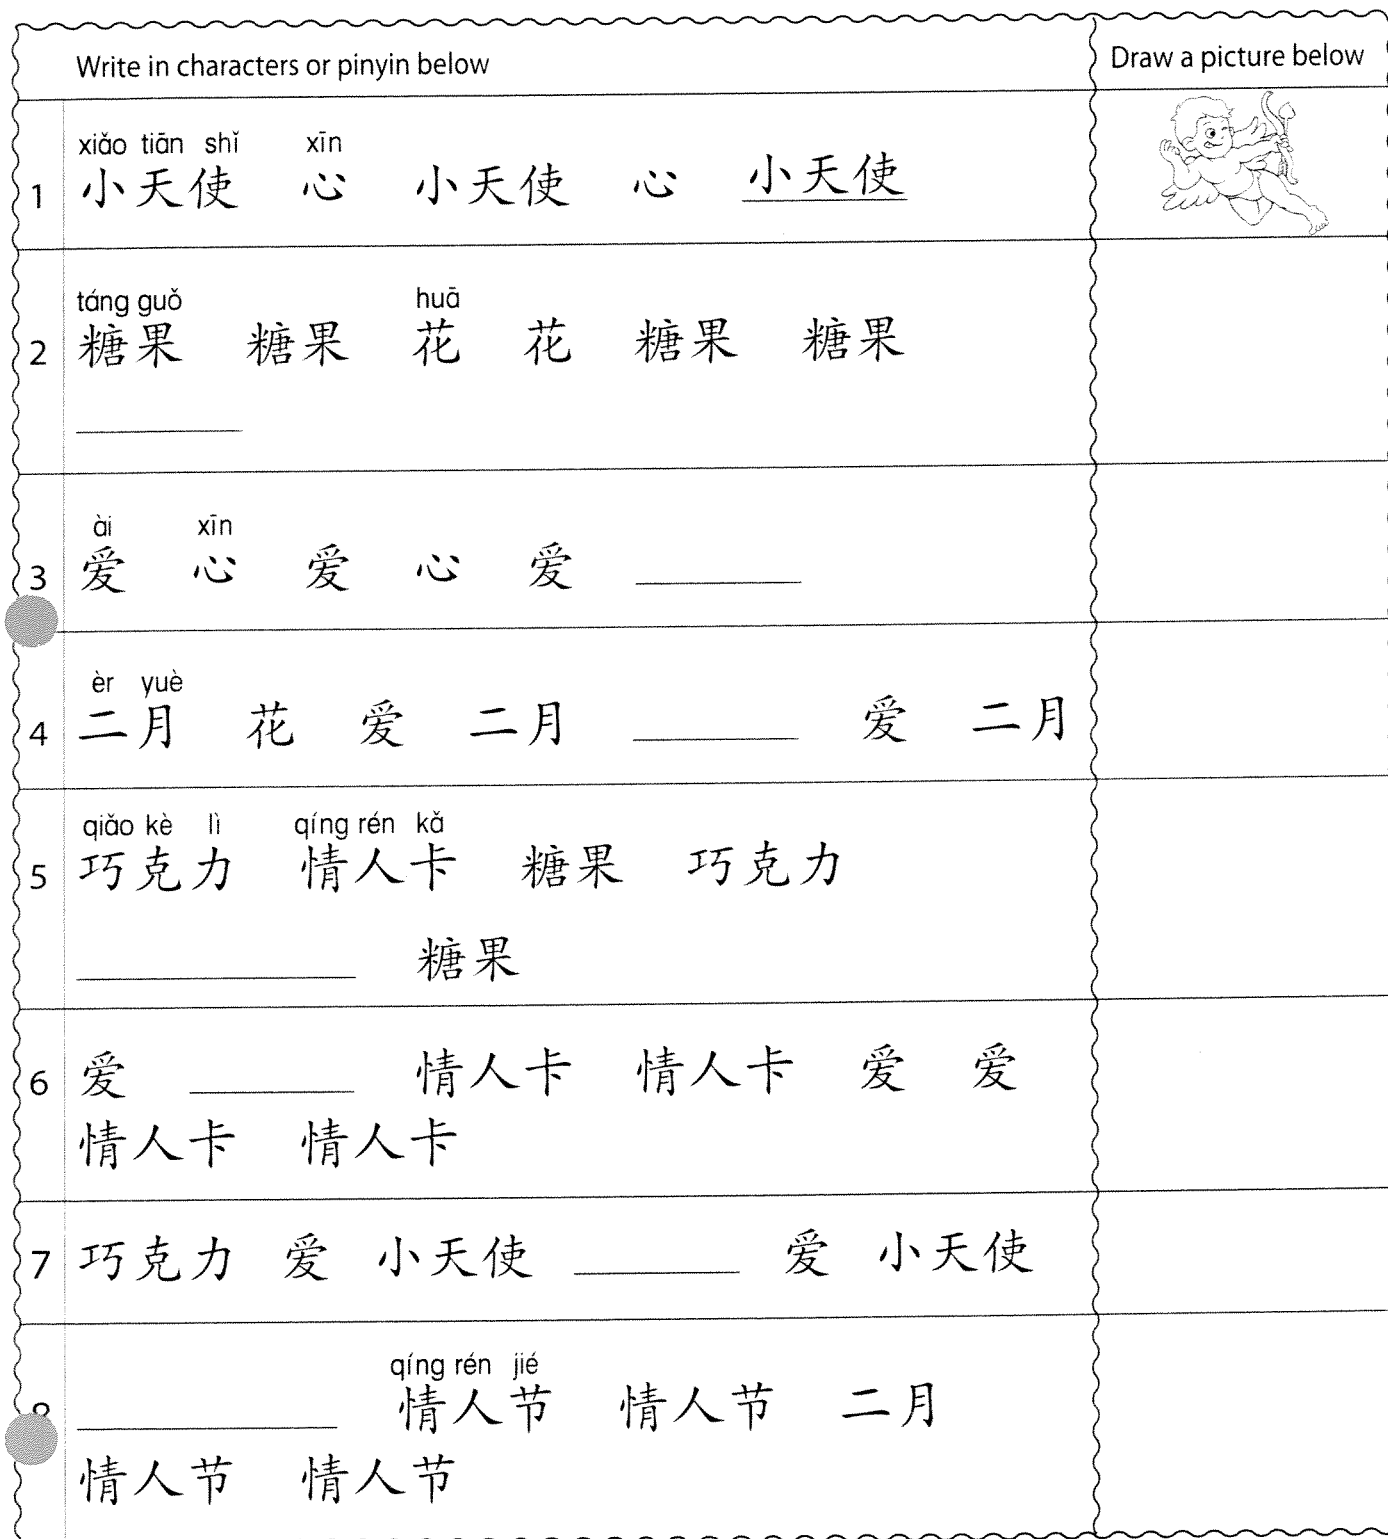 Write in characters or pinyin below
Draw a picture below
xiǎo tiān shǐ xīn
1 小天使 心 小天使 心 小天使
táng guǒ huā
2 糖果 糖果 花 花 糖果 糖果
ài xīn
3 爱 心 爱 心 爱
èr yuè
4 二月 花 爱 二月 爱 二月
qiǎo kè lì qíng rén kǎ
5 巧克力 情人卡 糖果 巧克力
糖果
6 爱 情人卡 情人卡 爱 爱
情人卡 情人卡
7 巧克力 爱 小天使 爱 小天使
qíng rén jié
情人节 情人节 二月
情人节 情人节